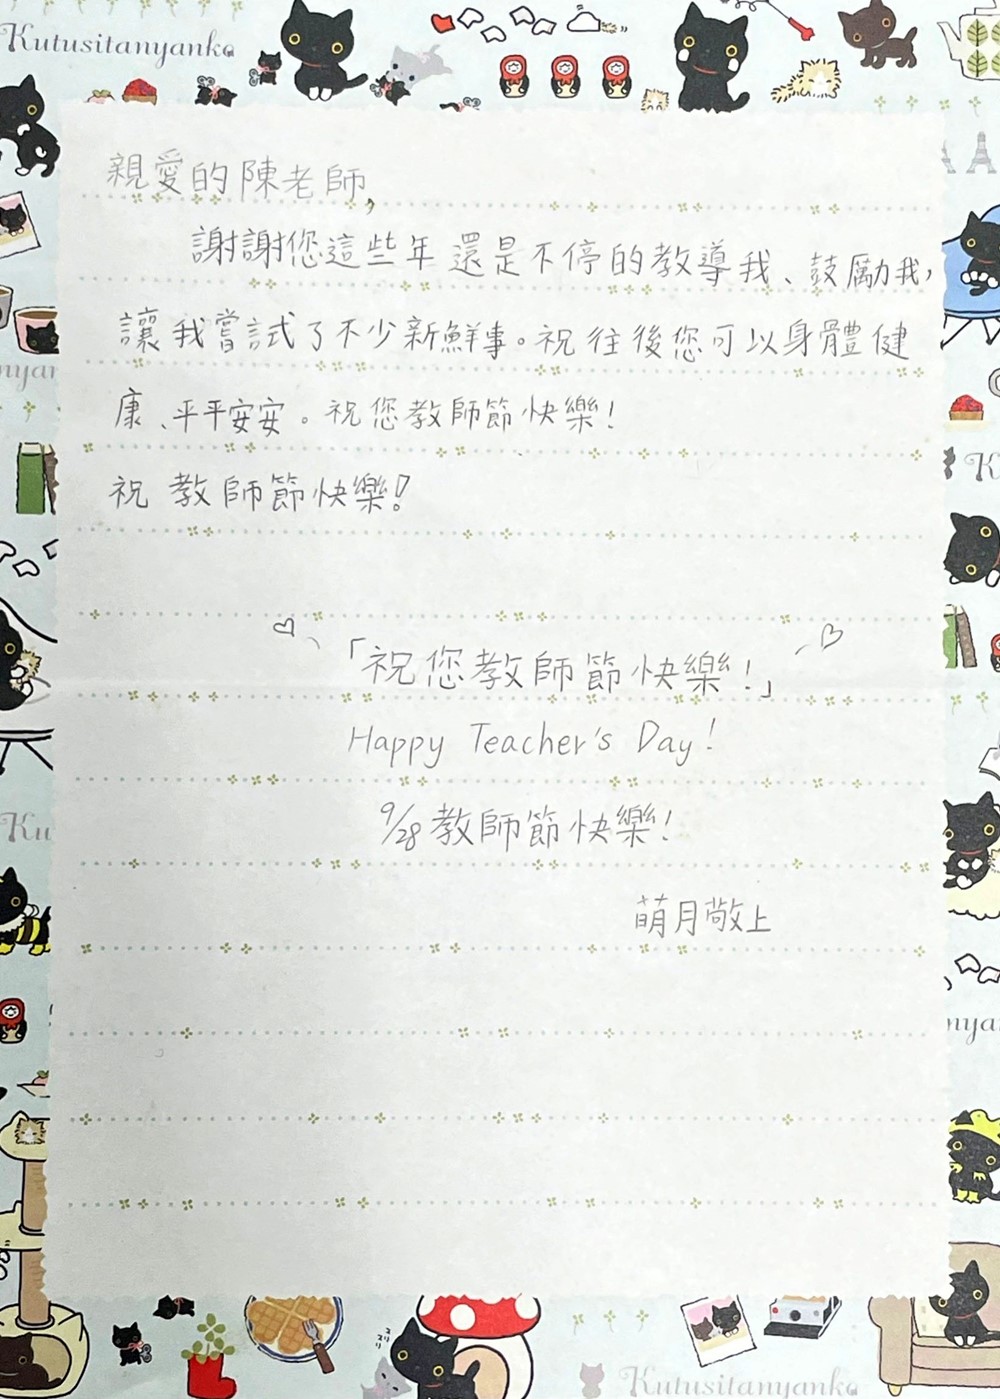 Kutusitanyanko
親愛的陳老師,
謝謝您這些年還是不停的教導我、鼓勵我,
讓我嘗試了不少新鮮事。祝往後您可以身體健
康、平平安安。祝您教師節快樂!
祝教師節快樂!
「祝您教師節快樂!」
Happy Teacher's Day!
9/28教師節快樂!
萌月敬上
Kutusitanyanko